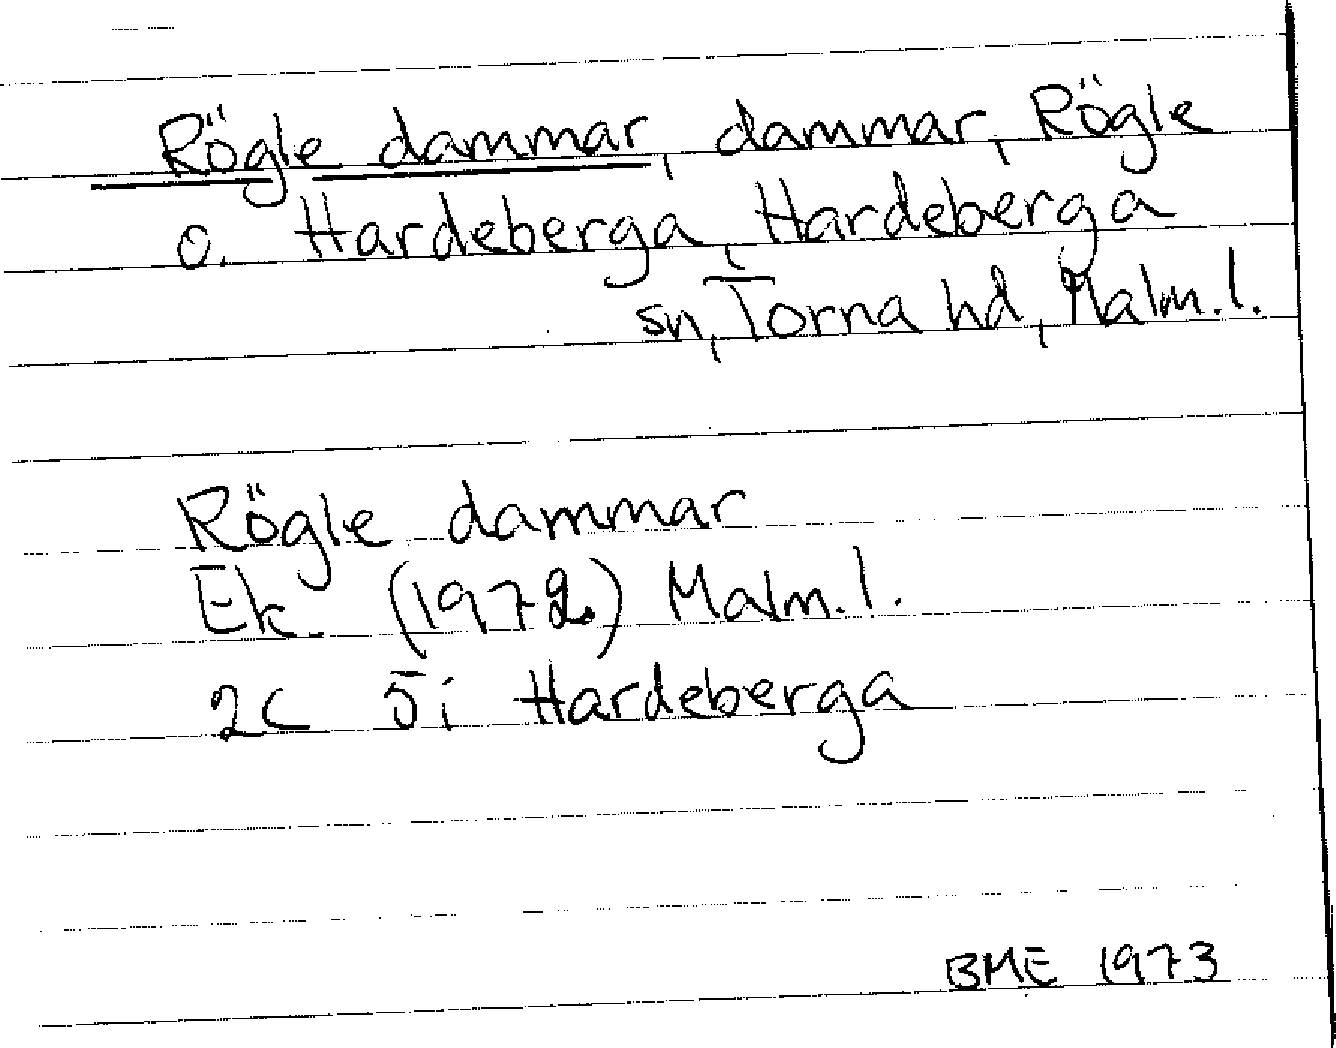 Rögle dammar, dammar, Rögle
o. Hardeberga, Hardeberga
sn, Torna hd, Malm.l.
Rögle dammar
Ek. (1972) Malm.l.
2C 5i Hardeberga
BME 1973